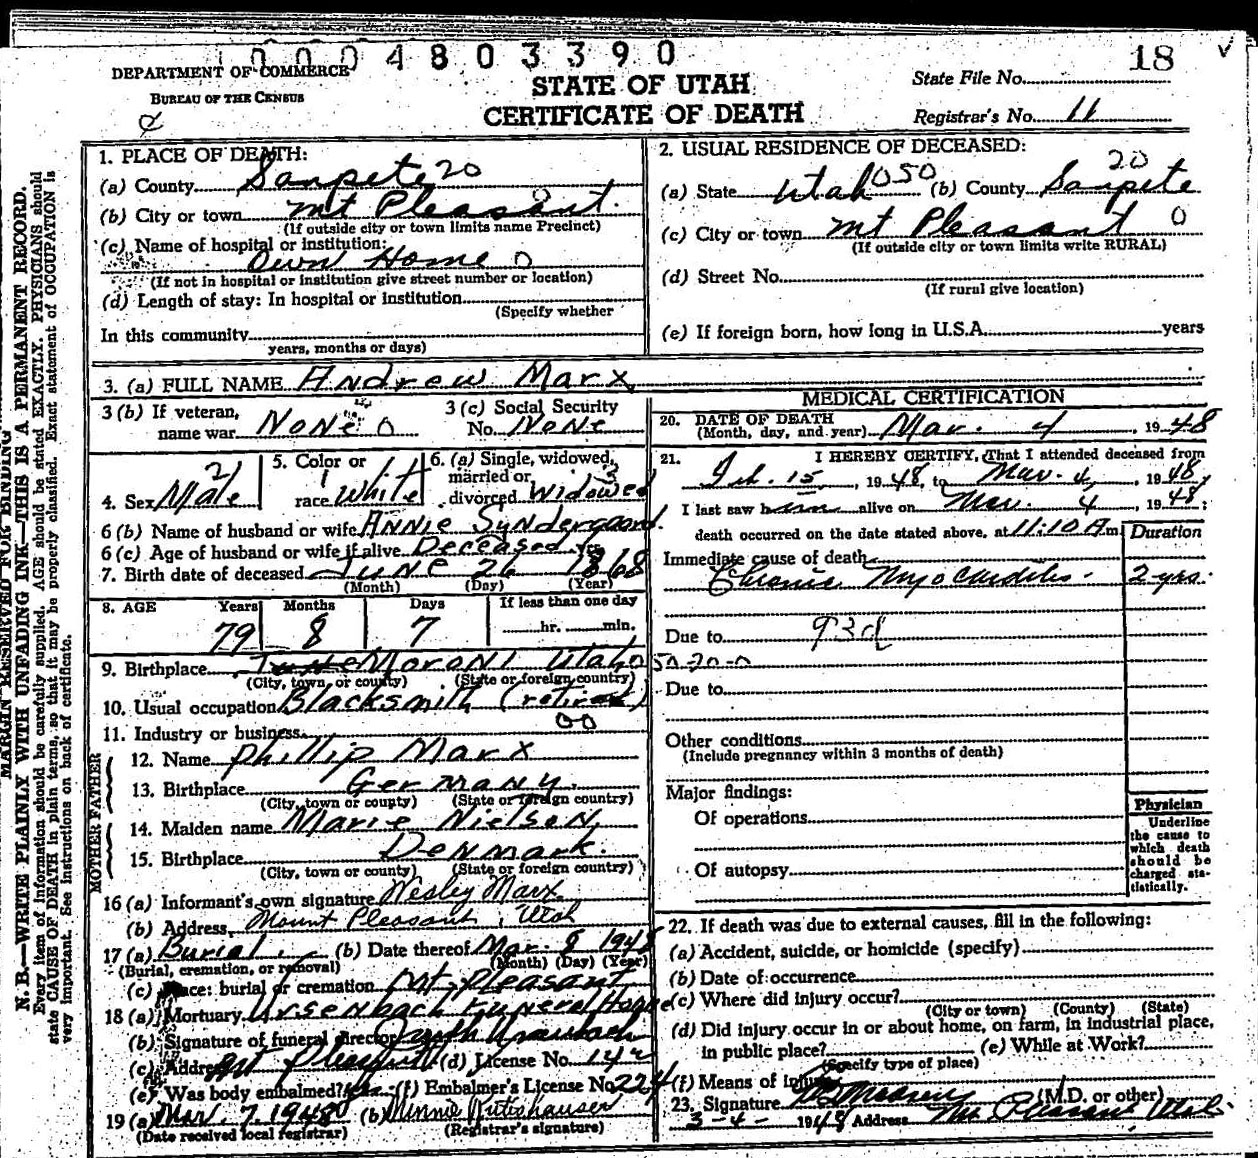 0004803390
18
DEPARTMENT OF COMMERCE
BUREAU OF THE CENSUS
STATE OF UTAH
CERTIFICATE OF DEATH
State File No.
Registrar's No. 11
MARGIN RESERVED FOR BINDING
N. B.—WRITE PLAINLY WITH UNFADING INK—THIS IS A PERMANENT RECORD.
Every item of information should be carefully supplied. AGE should be stated EXACTLY. PHYSICIANS should
state CAUSE OF DEATH in plain terms, so that it may be properly classified. Exact statement of OCCUPATION is
very important. See instructions on back of certificate.
1. PLACE OF DEATH:
(a) County Sanpete 20
(b) City or town Mt Pleasant. 0
(If outside city or town limits name Precinct)
(c) Name of hospital or institution:
Own Home 0
(If not in hospital or institution give street number or location)
(d) Length of stay: In hospital or institution
(Specify whether
In this community
years, months or days)
2. USUAL RESIDENCE OF DECEASED:
(a) State Utah 050 (b) County Sanpete 20
(c) City or town Mt Pleasant 0
(If outside city or town limits write RURAL)
(d) Street No.
(If rural give location)
(e) If foreign born, how long in U.S.A. years
3. (a) FULL NAME Andrew Marx
3 (b) If veteran, name war None 0
3 (c) Social Security No. None
4. Sex Male 2
5. Color or race White
6. (a) Single, widowed, married or divorced Widowed 3
6 (b) Name of husband or wife Annie Syndergaard.
6 (c) Age of husband or wife if alive Deceased yrs
7. Birth date of deceased June 26 1868
(Month) (Day) (Year)
8. AGE Years Months Days If less than one day
79 8 7 hr. min.
9. Birthplace Moroni Utah 050-20-0
(City, town, or county) (State or foreign country)
10. Usual occupation Blacksmith (retired)
11. Industry or business 00
FATHER
12. Name Phillip Marx
13. Birthplace Germany.
(City, town or county) (State or foreign country)
MOTHER
14. Maiden name Marie Nielson
15. Birthplace Denmark.
(City, town or county) (State or foreign country)
16 (a) Informant's own signature Wesley Marx
(b) Address Mount Pleasant, Utah
17 (a) Burial. (b) Date thereof Mar. 8 1948
(Burial, cremation, or removal) (Month) (Day) (Year)
(c) Place: burial or cremation Mt. Pleasant
18 (a) Mortuary Ursenbach Funeral Home
(b) Signature of funeral director Ursenbach
(c) Address Mt Pleasant (d) License No. 142
(e) Was body embalmed? yes (f) Embalmer's License No 224
19 (a) Mar. 7. 1948 (b) Minnie Rutishauser
(Date received local registrar) (Registrar's signature)
MEDICAL CERTIFICATION
20. DATE OF DEATH
(Month, day, and year) Mar. 4, 1948
21. I HEREBY CERTIFY, That I attended deceased from
Feb. 15, 1948, to Mar. 4, 1948,
I last saw him alive on Mar. 4, 1948;
death occurred on the date stated above, at 11:10 A m
Duration
Immediate cause of death
Chronic Myocarditis. 2 yrs.
Due to 93d
Due to
Other conditions
(Include pregnancy within 3 months of death)
Major findings:
Of operations
Of autopsy
Physician
Underline
the cause to
which death
should be
charged sta-
tistically.
22. If death was due to external causes, fill in the following:
(a) Accident, suicide, or homicide (specify)
(b) Date of occurrence
(c) Where did injury occur?
(City or town) (County) (State)
(d) Did injury occur in or about home, on farm, in industrial place,
in public place? (e) While at Work?
(Specify type of place)
(f) Means of injury
23. Signature (M.D. or other)
3-4- 1948 Address Mt Pleasant Utah